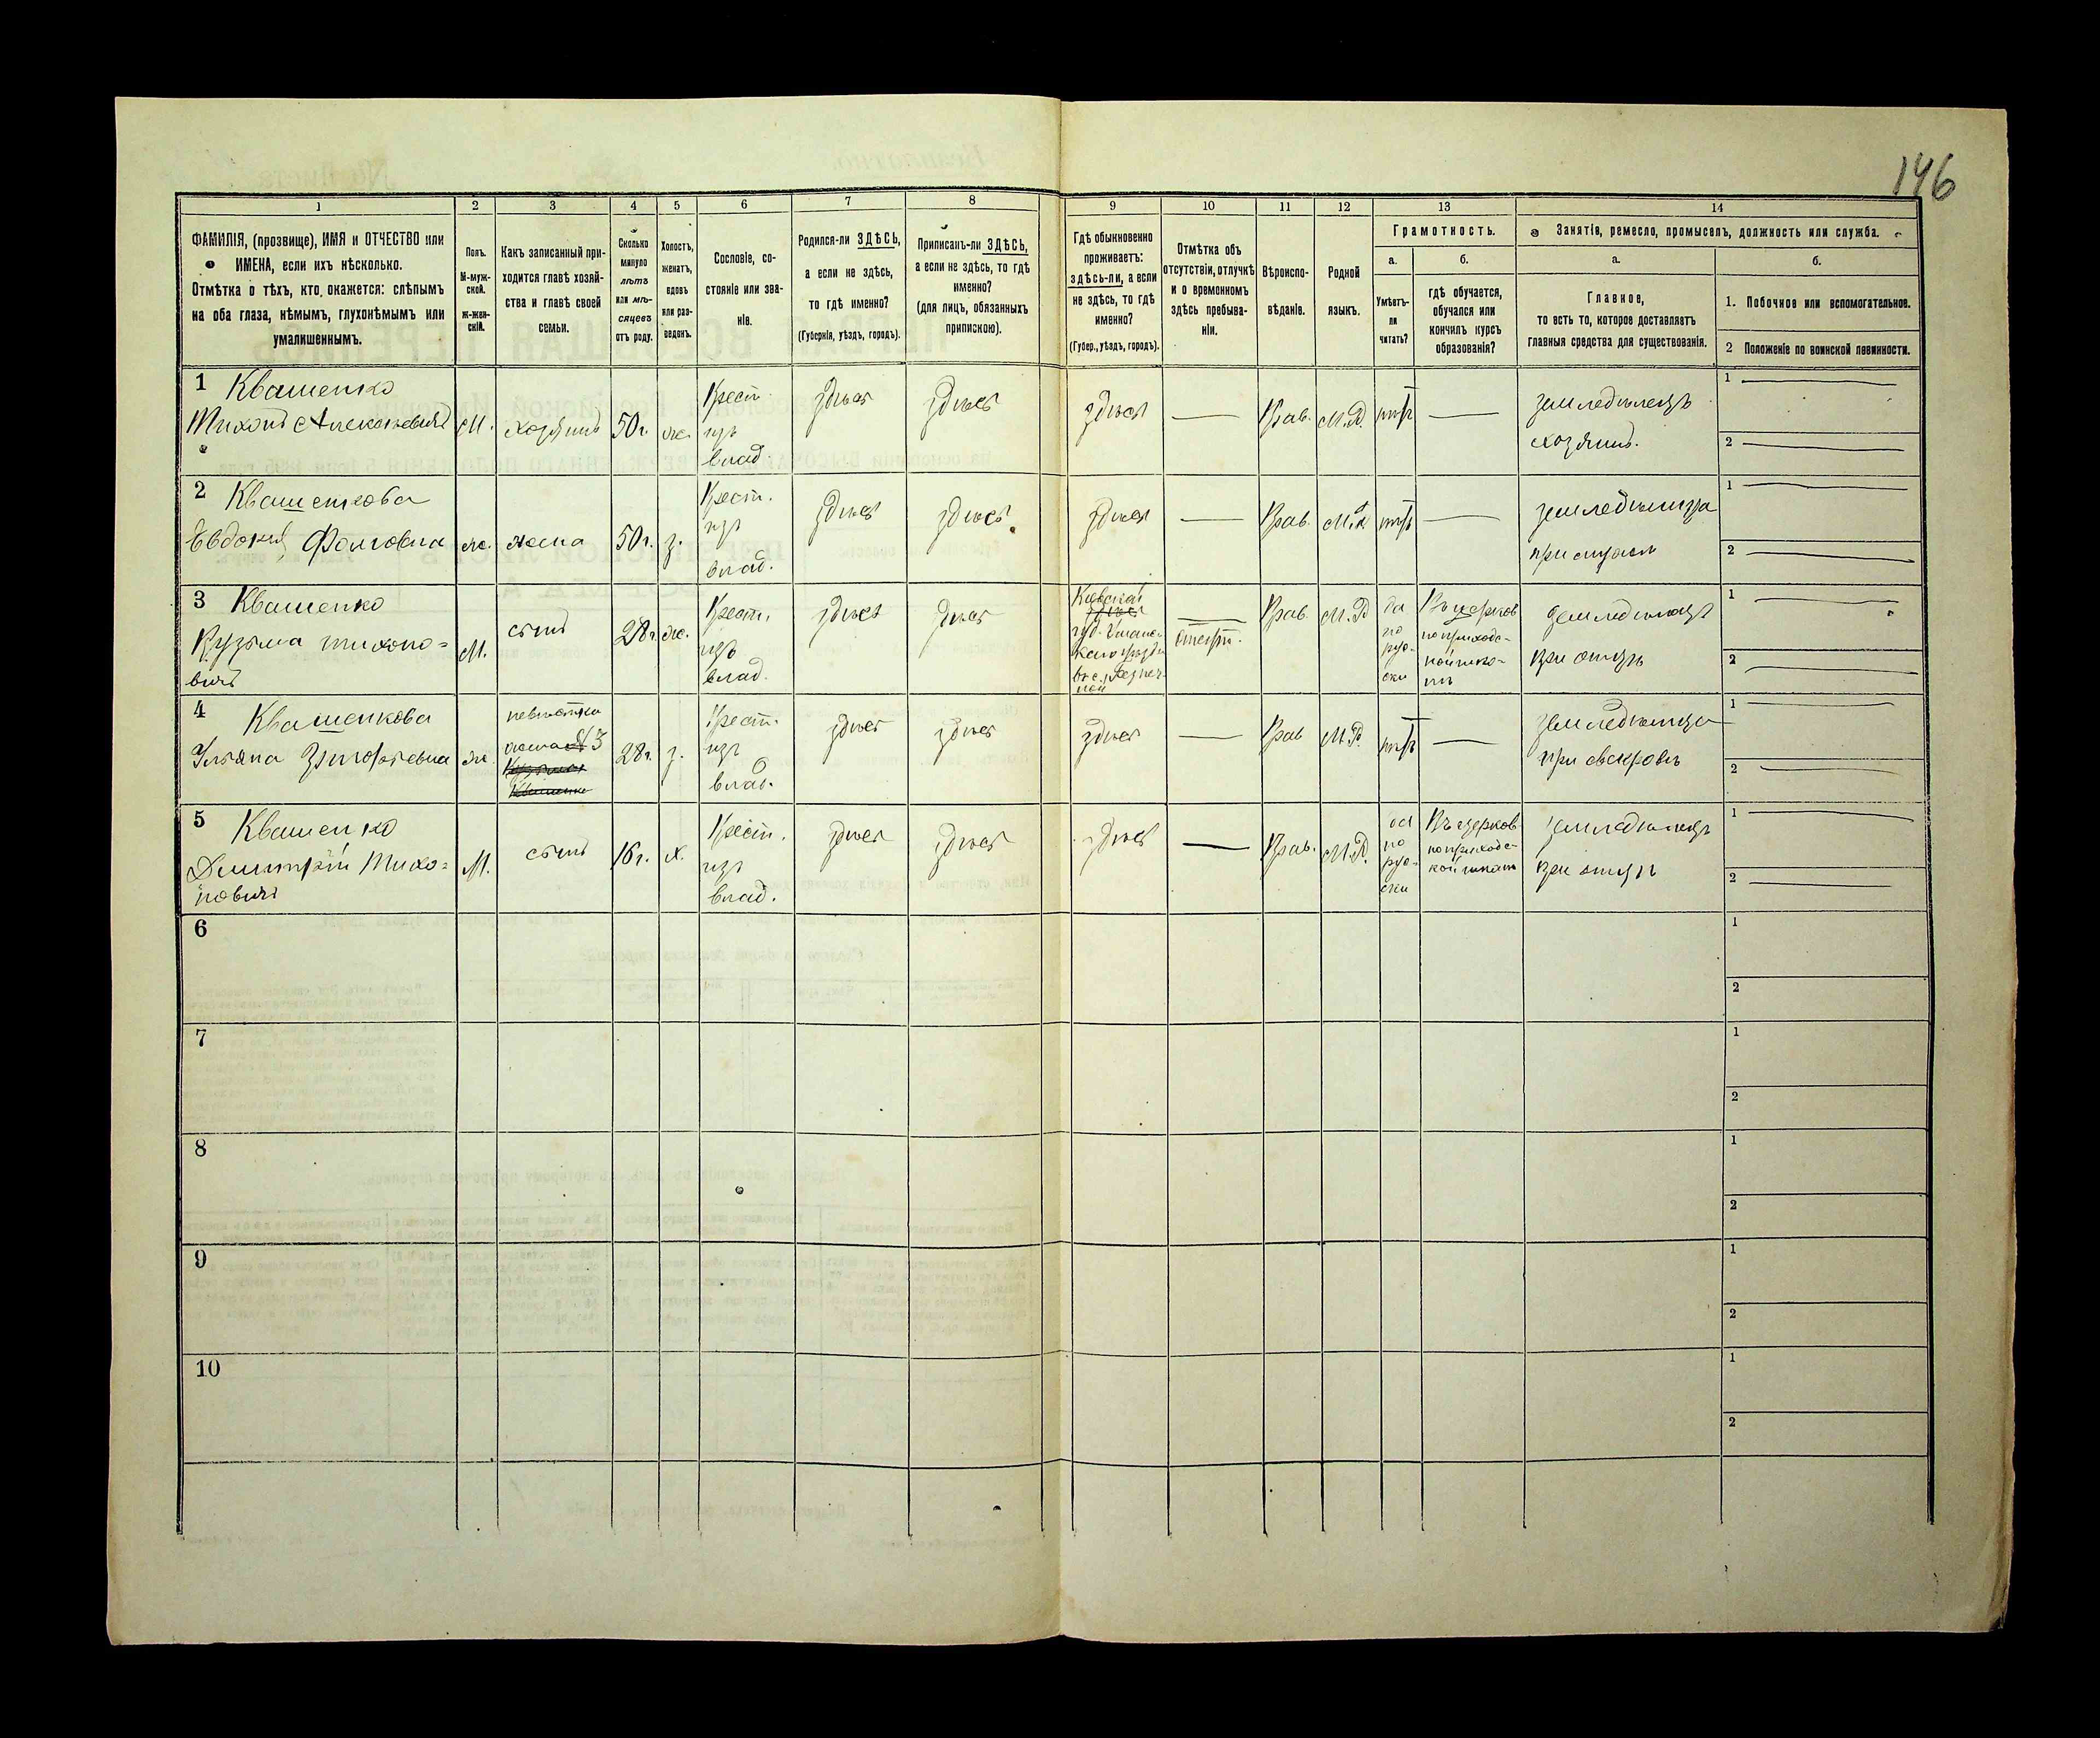 146
1 2 3 4 5 6 7 8 9 10 11 12 13 14
ФАМИЛІЯ, (прозвище), ИМЯ и ОТЧЕСТВО или
ИМЕНА, если ихъ нѣсколько.
Отмѣтка о тѣхъ, кто окажется: слѣпымъ
на оба глаза, нѣмымъ, глухонѣмымъ или
умалишеннымъ.
Полъ.
М-муж-
ской.
Ж-жен-
скій.
Какъ записанный при-
ходится главѣ хозяй-
ства и главѣ своей
семьи.
Сколько
минуло
лѣтъ
или мѣ-
сяцевъ
отъ роду.
Холостъ,
женатъ,
вдовъ
или раз-
веденъ.
Сословіе, со-
стояніе или зва-
ніе.
Родился-ли ЗДѢСЬ,
а если не здѣсь,
то гдѣ именно?
(Губернія, уѣздъ, городъ).
Приписанъ-ли ЗДѢСЬ,
а если не здѣсь, то гдѣ
именно?
(для лицъ, обязанныхъ
припискою).
Гдѣ обыкновенно
проживаетъ:
здѣсь-ли, а если
не здѣсь, то гдѣ
именно?
(Губер., уѣздъ, городъ).
Отмѣтка объ
отсутствіи, отлучкѣ
и о временномъ
здѣсь пребыва-
ніи.
Вѣроиспо-
вѣданіе.
Родной
языкъ.
Грамотность.
а.
Умѣетъ-
ли
читать?
б.
гдѣ обучается,
обучался или
кончилъ курсъ
образованія?
Занятіе, ремесло, промыселъ, должность или служба.
а.
Главное,
то есть то, которое доставляетъ
главныя средства для существованія.
б.
1. Побочное или вспомогательное.
2 Положеніе по воинской повинности.
1 Квашенко
Тихонъ
М.
хозяинъ
50 г.
же.
Крест.
изъ
влад.
здѣсь
здѣсь
здѣсь
—
Прав.
М.Р.
нѣтъ
—
земледѣлецъ
хозяинъ.
1 —
2 —
2 Квашенкова
Евдокія Фомовна
же.
жена
50 г.
з.
Крест.
изъ
влад.
здѣсь
здѣсь
здѣсь
—
Прав.
М.Р.
нѣтъ
—
земледѣлица
при мужѣ
1 —
2 —
3 Квашенко
Кузьма Тихоно=
вичъ
М.
сынъ
28 г.
же.
Крест.
изъ
влад.
здѣсь
здѣсь
Кіевской
здѣсь
губ. Уманс-
каго уѣзда
въ с.
Прав.
М.Р.
да
по
рус-
ски
Въ церков
ноприходс-
кой шко-
лѣ
земледѣлецъ
при отцѣ
1 —
2 —
4 Квашенкова
Ульяна
же.
невѣстка
жена №3
Кузьмы
Квашенко
28 г.
з.
Крест.
изъ
влад.
здѣсь
здѣсь
здѣсь
—
Прав
М.Р.
нѣтъ
—
земледѣлица
при свекровѣ
1 —
2 —
5 Квашенко
Димитрій Тихо=
новичъ
М.
сынъ
16 г.
х.
Крест.
изъ
влад.
здѣсь
здѣсь
здѣсь
—
Прав.
М.Р.
да
по
рус-
ски
Въ церков
ноприходс-
кой школѣ
земледѣлецъ
при отцѣ
1 —
2 —
6
1
2
7
1
2
8
1
2
9
1
2
10
1
2